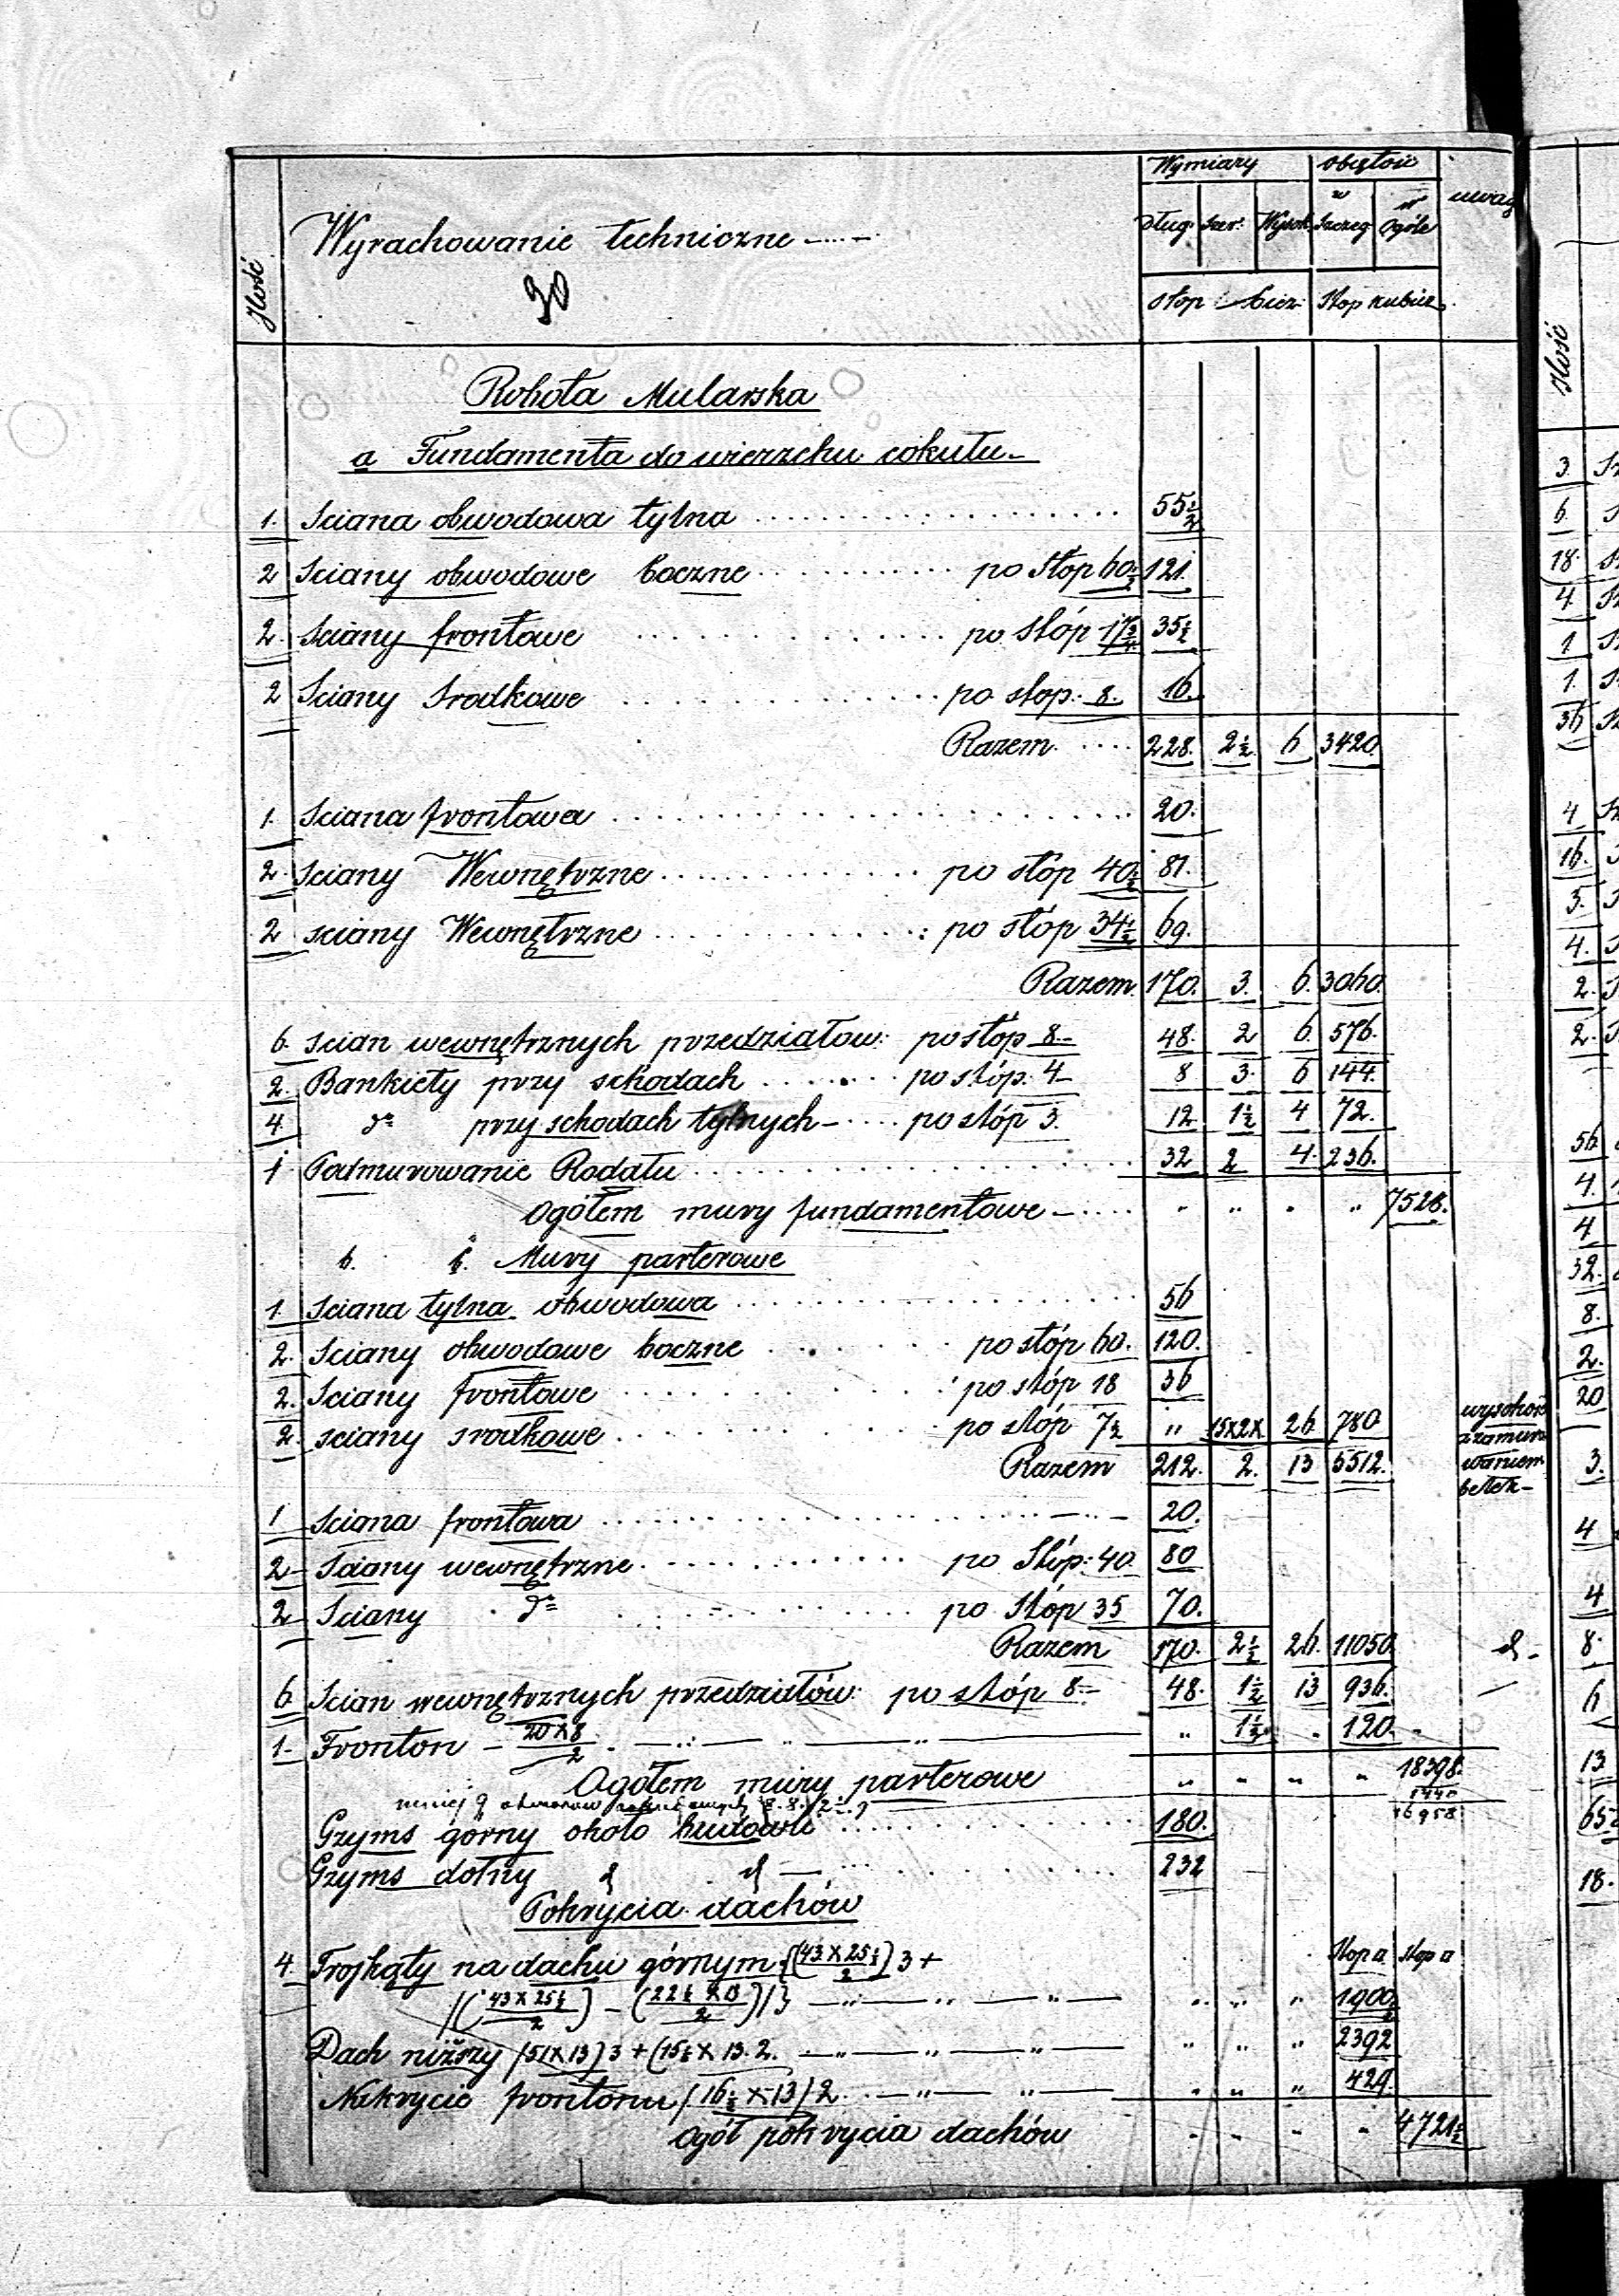 Ilość
Wyrachowanie techniczne
30
Wymiary objętość uwag
Dług. Szer. Wysok. w Szczeg. w ogóle
Stop bież: Stop kubicz.
Robota Mularska
a Fundamenta do wierzchu cokułu
1. Sciana obwodowa tylna 55½
2 Sciany obwodowe boczne po Stóp 60½ 121.
2. Sciany frontowe po stóp 17¾ 35½
2 Sciany Srodkowe po stop. 8. 16.
Razem 228. 2½ 6 3420.
1. Sciana frontowa 20.
2. Sciany Wewnętrzne po stóp 40½ 81.
2 sciany Wewnętrzne po stóp 34½ 69.
Razem. 170. 3. 6. 3060.
6. scian wewnętrznych przedziałów: po stóp 8 48. 2 6. 576.
2. Bankiety przy schodach po stóp. 4 8 3. 6 144.
4 dº przy schodach tylnych po stóp 3. 12 1½ 4 72.
1 Podmurowanie Rodatu 32 2 4. 256.
Ogółem mury fundamentowe " " " " 7528.
b. Mury parterowe
1. Sciana tylna obwodowa 56
2. Sciany obwodowe boczne po stóp 60. 120.
2. Sciany frontowe po stóp 18 36
2. sciany srodkowe po stóp 7½ " 15x2x 26 780
Razem 212. 2. 13 5512.
wysokość
z zamuro
waniem
belek
1 Sciana frontowa 20.
2 Sciany wewnętrzne po Stóp: 40 80
2 Sciany dº po Stóp 35 70.
Razem 170. 2½ 26. 11050.
6 Scian wewnętrznych przedziałów: po stóp 8 48. 1½ 13 936.
1 Fronton 20 x 8 / 2 " 1½ " 120.
Ogółem mury parterowe " " " " 18398.
mniej 9 otworów 1440
16958
Gzyms górny około budowli 180.
Gzyms dolny 232
Pokrycia dachów
4. Trojkąty na dachu górnym {(43 x 25½ / 2) 3 + Stop a Stop a
/(43 x 25½ / 2) - (22½ x 13 / 2)/} " " " 1900½
Dach niższy /51 x 13/ 3 + (15½ x 13. 2. " " " 2392
Nakrycie frontonu /16½ x 13/ 2 " " " 429.
Ogół pokrycia dachów " " " " 4721½
Ilość
3.
6.
18.
4.
1
1.
36
4
16.
3.
4.
2.
2.
56
4.
4
32.
8.
2.
20
3.
4
4
8.
6
13
65
18.